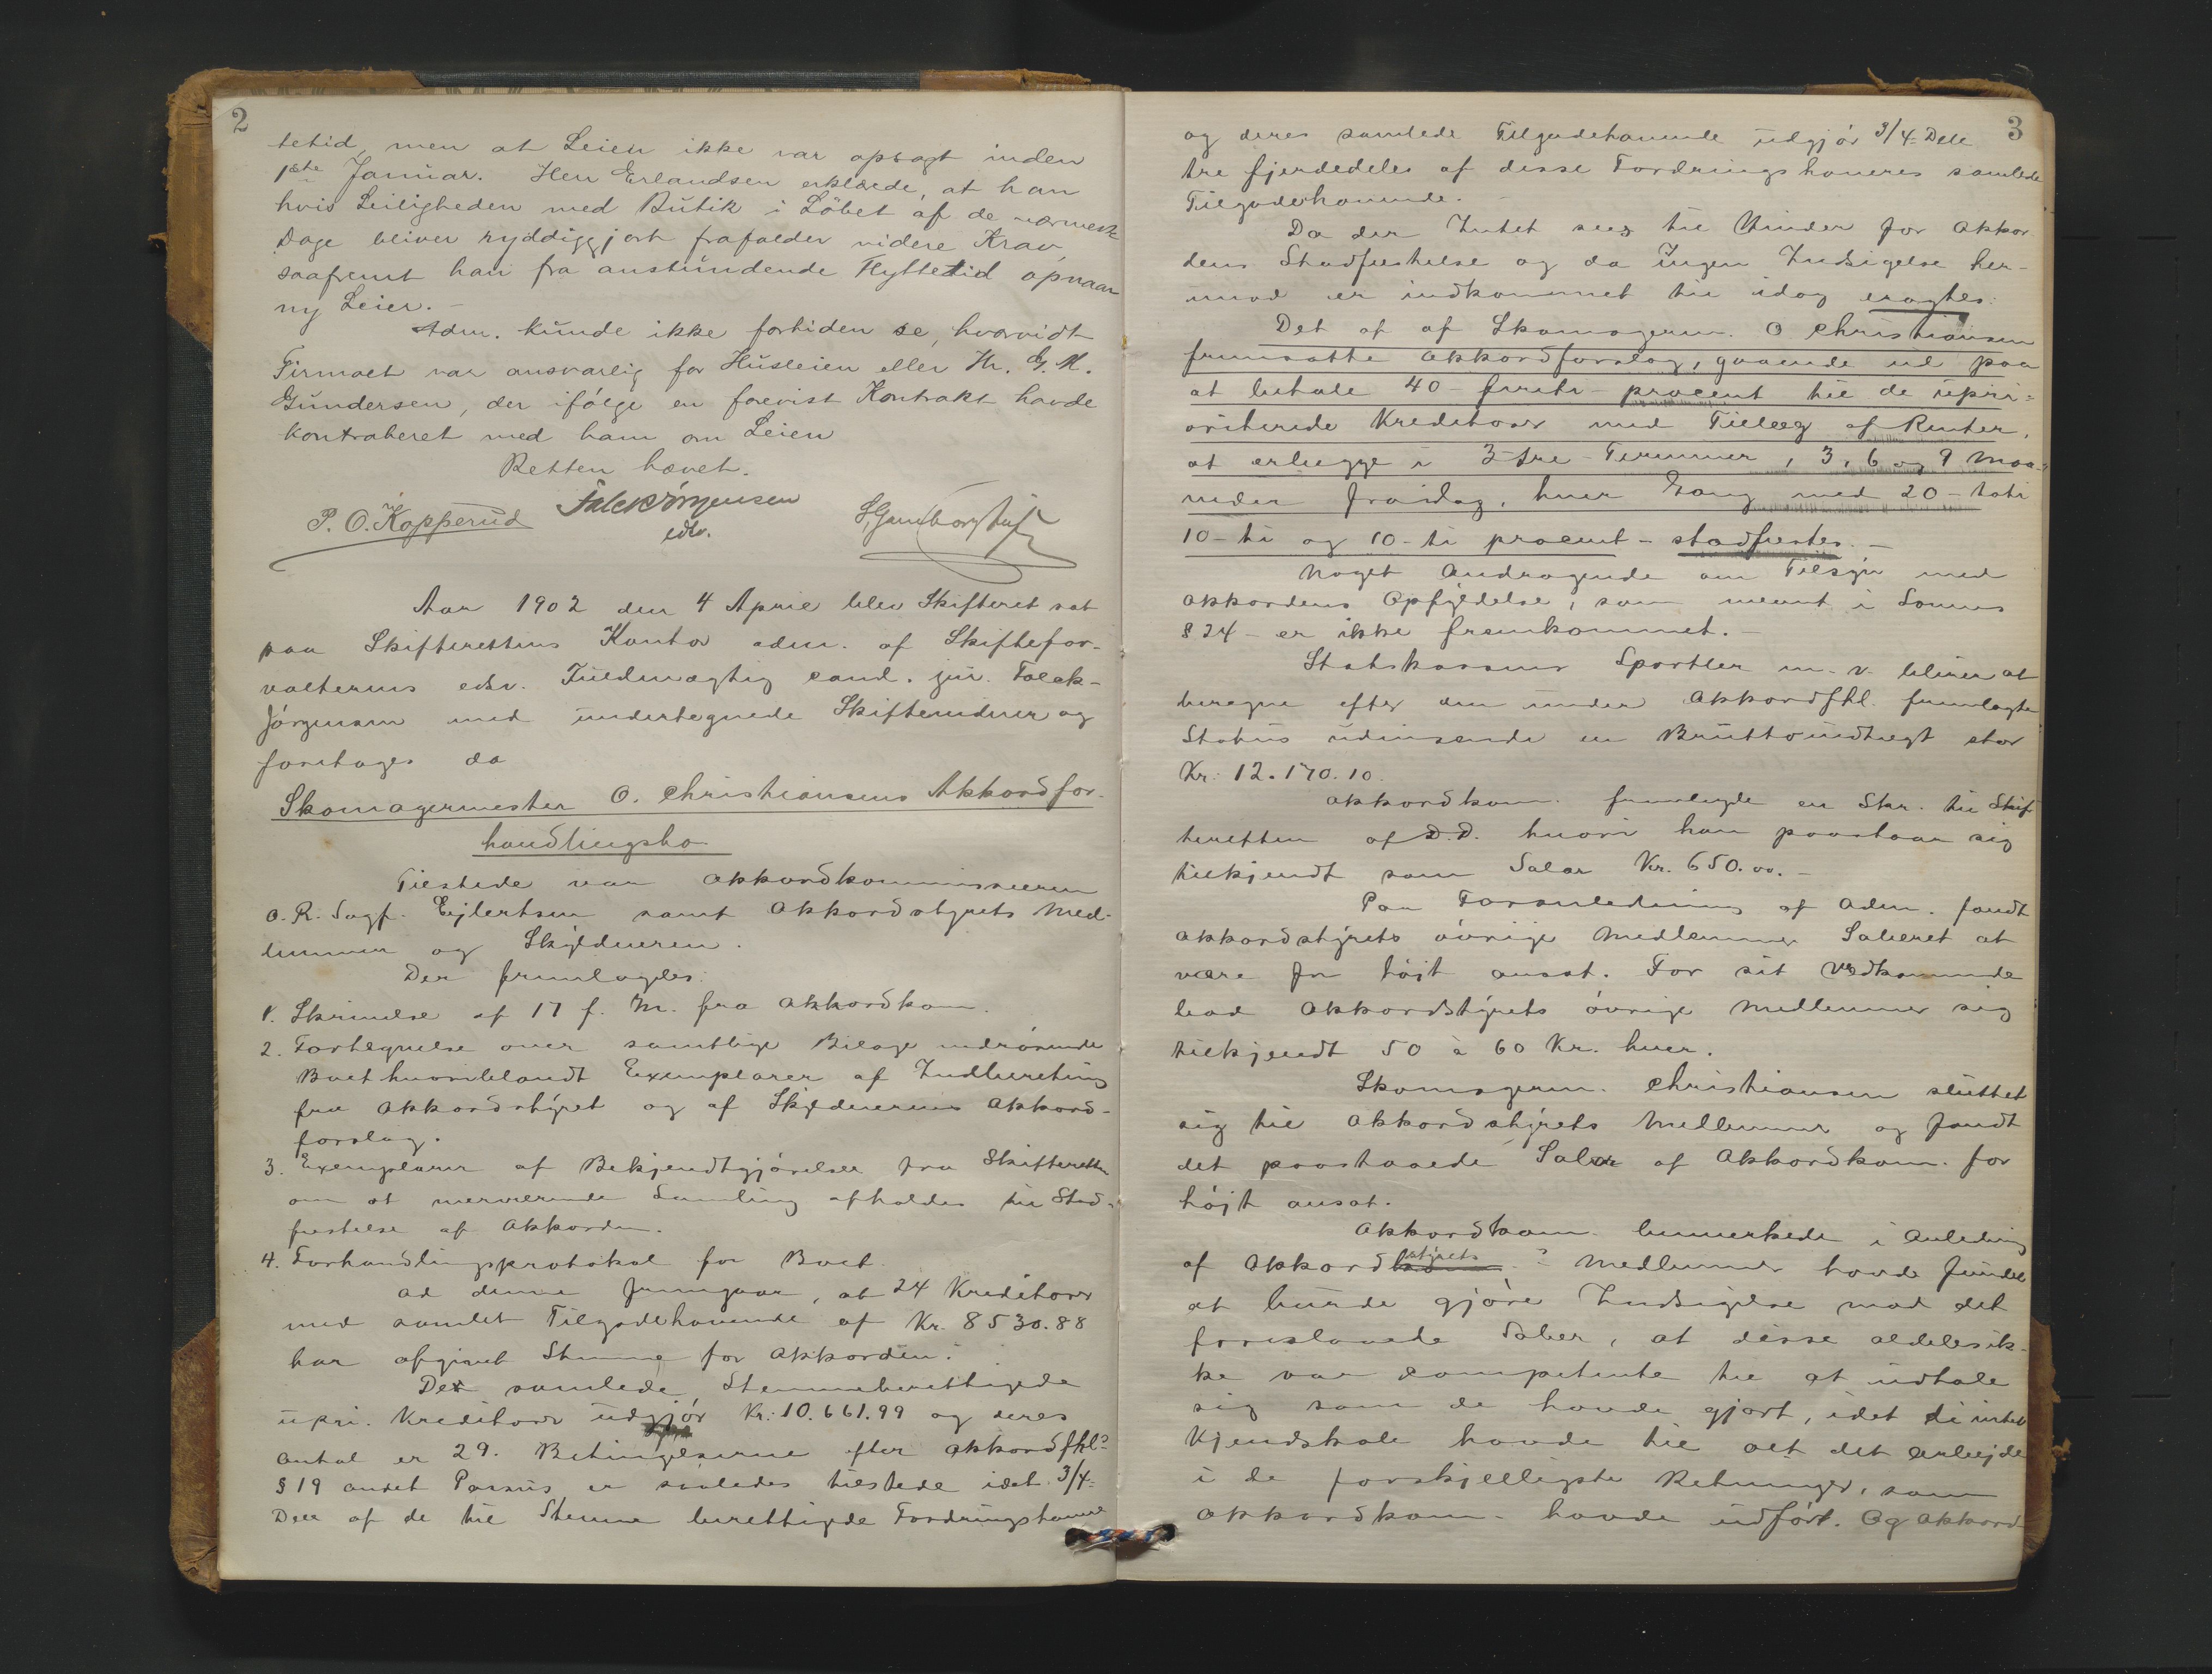 2
tetid, men at Leien ikke var opsagt inden
1ste Januar. Herr Erlandsen erklærede, at han
hvis Leiligheden med Butik i Löbet af de nærmeste
Dage bliver ryddiggjort frafalder videre Krav,
saafremt han fra anstundende Flyttetid opnaar
ny Leier. –
Adm. kunde ikke fortiden se, hvorvidt
Firmaet var ansvarlig for Husleien eller Hr. G. M.
Gundersen, der ifölge en forevist Kontrakt havde
kontraheret med ham om Leien
Retten hævet.
P. O. Kopperud Falck Jörgensen
edsv.
Aar 1902 den 4 April blev Skifteret sat
paa Skifterettens Kontor adm. af Skiftefor-
valterens edsv. Fuldmægtig cand. jur. Falck-
Jörgensen med undertegnede Skiftevidner og
foretoges da
Skomagermester O. Christiansens Akkordfor-
handlingsbo
Tilstede var Akkordkommissæren
O. R. Sagf. Ejlertsen samt Akkordstyrets Med-
lemmer og Skyldneren.
Der fremlagdes:
1. Skrivelse af 17 f. M. fra Akkordkom.
2. Fortegnelse over samtlige Bilage vedrörende
Boet hvoriblandt Exemplarer af Indberetning
fra Akkordstyret og af Skyldnerens Akkord-
forslag.
3. Exemplarer af Bekjendtgjörelse fra Skifteretten
om at nærværende Samling afholdes til Stad-
fæstelse af Akkorden.
4. Forhandlingsprotokol for Boet.
Af denne fremgaar, at 24 Kreditorer
med samlet Tilgodehavende af Kr. 8530.88
har afgivet Stemme for Akkorden.
De samlede Stemmeberettigede
upri. Kreditorer udgjör Kr: 10.661.99 og deres
Antal er 29. Betingelserne efter Akkordfhl's
§ 19 andet Passus er saaledes tilstede idet 3/4-
Dele af de til Stemme berettigede Fordringshavere
3
og deres samlede Tilgodehavende udgjör 3/4-Dele
tre fjerdedeler af disse Fordringshaveres samlede
Tilgodehavende. –
Da der Intet sees til Hinder for Akkor-
dens Stadfæstelse og da ingen Indsigelse her-
imod er indkommet til idag eragtes:
Det af af Skomagerm. O Christiansen
fremsatte Akkordforslag, gaaende ud paa
at betale 40 – firti – procent til de upri-
oriterede Kreditorer med Tillæg af Renter,
at erlægge i 3 – tre – Terminer, 3, 6 og 9 Maa-
neder fra idag, hver Gang med 20 – toti
10 – ti og 10 – ti procent – stadfæstes. –
Noget Andragende om Tilsyn med
Akkordens Opfyldelse, som nævnt i Lovens
§ 24 – er ikke fremkommet. –
Statskassens Sportler m. v. bliver at
beregne efter den under Akkordfhl. fremlagte
Status udvisende en Bruttoindtægt stor
Kr: 12.170.10.
Akkordkom. fremlagde en Skr. til Skif-
teretten af D.D. hvori han paastaar sig
tilkjendt som Salær Kr. 650.00. –
Paa Foranledning af Adm. fandt
Akkordstyrets övrige Medlemmer Salæret at
være for höjt ansat. For sit Vedkommende
bad Akkordstyrets övrige Medlemmer sig
tilkjendt 50 à 60 Kr. hver.
Skomagerm. Christiansen sluttet
sig til Akkordstyrets Medlemmer og fandt
det paastaaede Salær af Akkordkom. for
höjt ansat.
Akkordkom. bemerkede i Anledning
af Akkordstyrets Medlemmer havde fundet
at burde gjöre Indsigelse mod det
foreslaaede Salær, at disse aldeles ik-
ke var competente til at udtale
sig som de havde gjort, idet de intet
Kjendskab havde til alt det Arbejde
i de forskjelligste Retninger, som
Akkordkom. havde udfört. Og Akkord